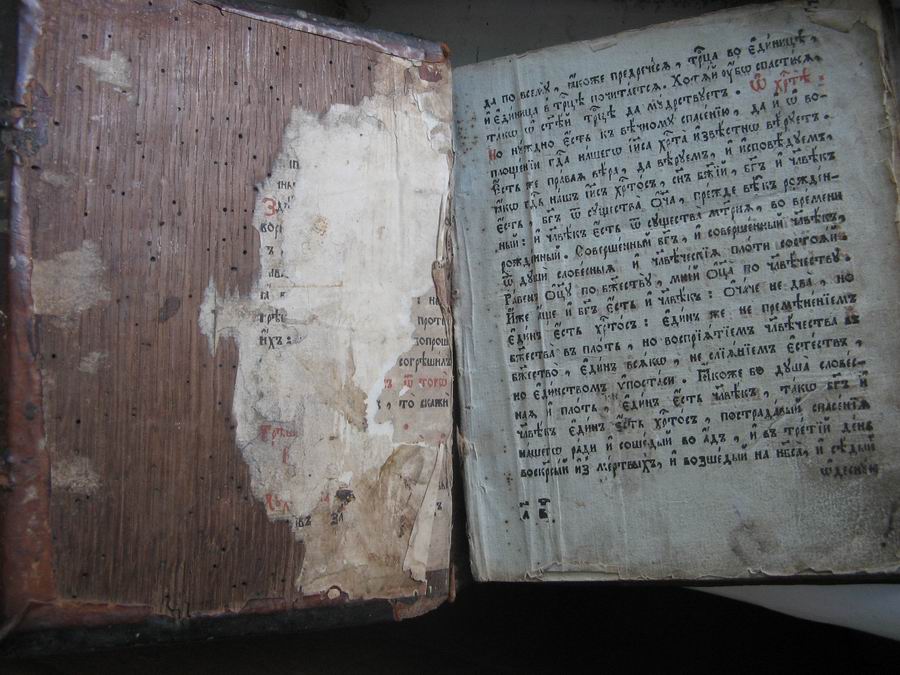 Зд
й́хъ :
согрѣшилъ
ѿ тогѡ
, то̀ скажи
да по всемꙋ̀ , ꙗ҆́коже предрече́сѧ , трⷪ҇ца во є҆ди́ницѣ ,
и҆ є҆ди́ница в̾ трⷪ҇цѣ почита́етсѧ . Хотѧ́й ᲂу҆̀бѡ спасти́сѧ ,
та́кѡ ѡ҆ ст҃ѣ́й трⷪ҇цѣ да мꙋ́дрствꙋетъ . Ѡ҆ хрⷭ҇тѣ̀ .
Но нꙋ́жно є҆́сть к̾ вѣ́чномꙋ спасе́нїю , да и҆ ѡ҆ во-
площе́нїи гдⷭ҇а на́шегѡ і҆и҃са хрⷭ҇та̀ и҆звѣ́стнѡ вѣ́рꙋетъ .
Е҆́сть же пра́ваѧ вѣ́ра , да вѣ́рꙋемъ , и҆ и҆сповѣ́дꙋемъ ,
ꙗ҆́кѡ гдⷭ҇ь на́шъ і҆и҃съ хрⷭ҇то́съ , сн҃ъ бж҃їй , бг҃ъ и҆ чл҃вѣ́къ
є҆́сть , бг҃ъ ѿ сꙋщества̀ ѻ҆ц҃а̀ , пре́жде вѣ̑къ рожде́н-
ный : и҆ чл҃вѣ́къ є҆́сть ѿ сꙋщества̀ мт҃рнѧ , во вре́мени
рожде́нный . Соверше́нный бг҃ъ , и҆ соверше́нный чл҃вѣ́къ ,
ѿ дꙋшѝ слове́сныѧ и҆ чл҃вѣ́ческїѧ пло́ти состоѧ́й .
Ра́венъ ѻ҆ц҃ꙋ̀ по бж҃ествꙋ̀ , мні́й ѻ҆ц҃а̀ по чл҃вѣ́честву .
И҆́же а҆́ще и҆ бг҃ъ є҆́сть и҆ чл҃вѣ́къ : Ѻ҆ба́че не два̀ , но
є҆ди́нъ є҆́сть хрⷭ҇то́съ : є҆ди́нъ же не премѣне́нїемъ
бж҃ества̀ в̾ пло́ть , но воспрїѧ́тїемъ чл҃вѣ́чества въ
бж҃ество̀ , є҆ди́нъ всѧ́кѡ , не слїѧ́нїемъ є҆сте́ствъ ,
но є҆ди́нствомъ ѵ҆поста́си . Ꙗ҆́коже бо дꙋша̀ слове́с-
наѧ и҆ пло́ть , є҆ди́нъ є҆́сть чл҃вѣ́къ , та́кѡ бг҃ъ и҆
чл҃вѣ́къ є҆ди́нъ є҆́сть хрⷭ҇то́съ , пострада́вый спасе́нїѧ
на́шегѡ ра́ди и҆ соше́дый во а҆́дъ , и҆ в̾ тре́тїй де́нь
воскрⷭ҇ый и҆з̾ ме́ртвыхъ , и҆ возше́дый на нб҃са̀ , и҆ сѣ́дый
ѡ҆деснꙋ́ю